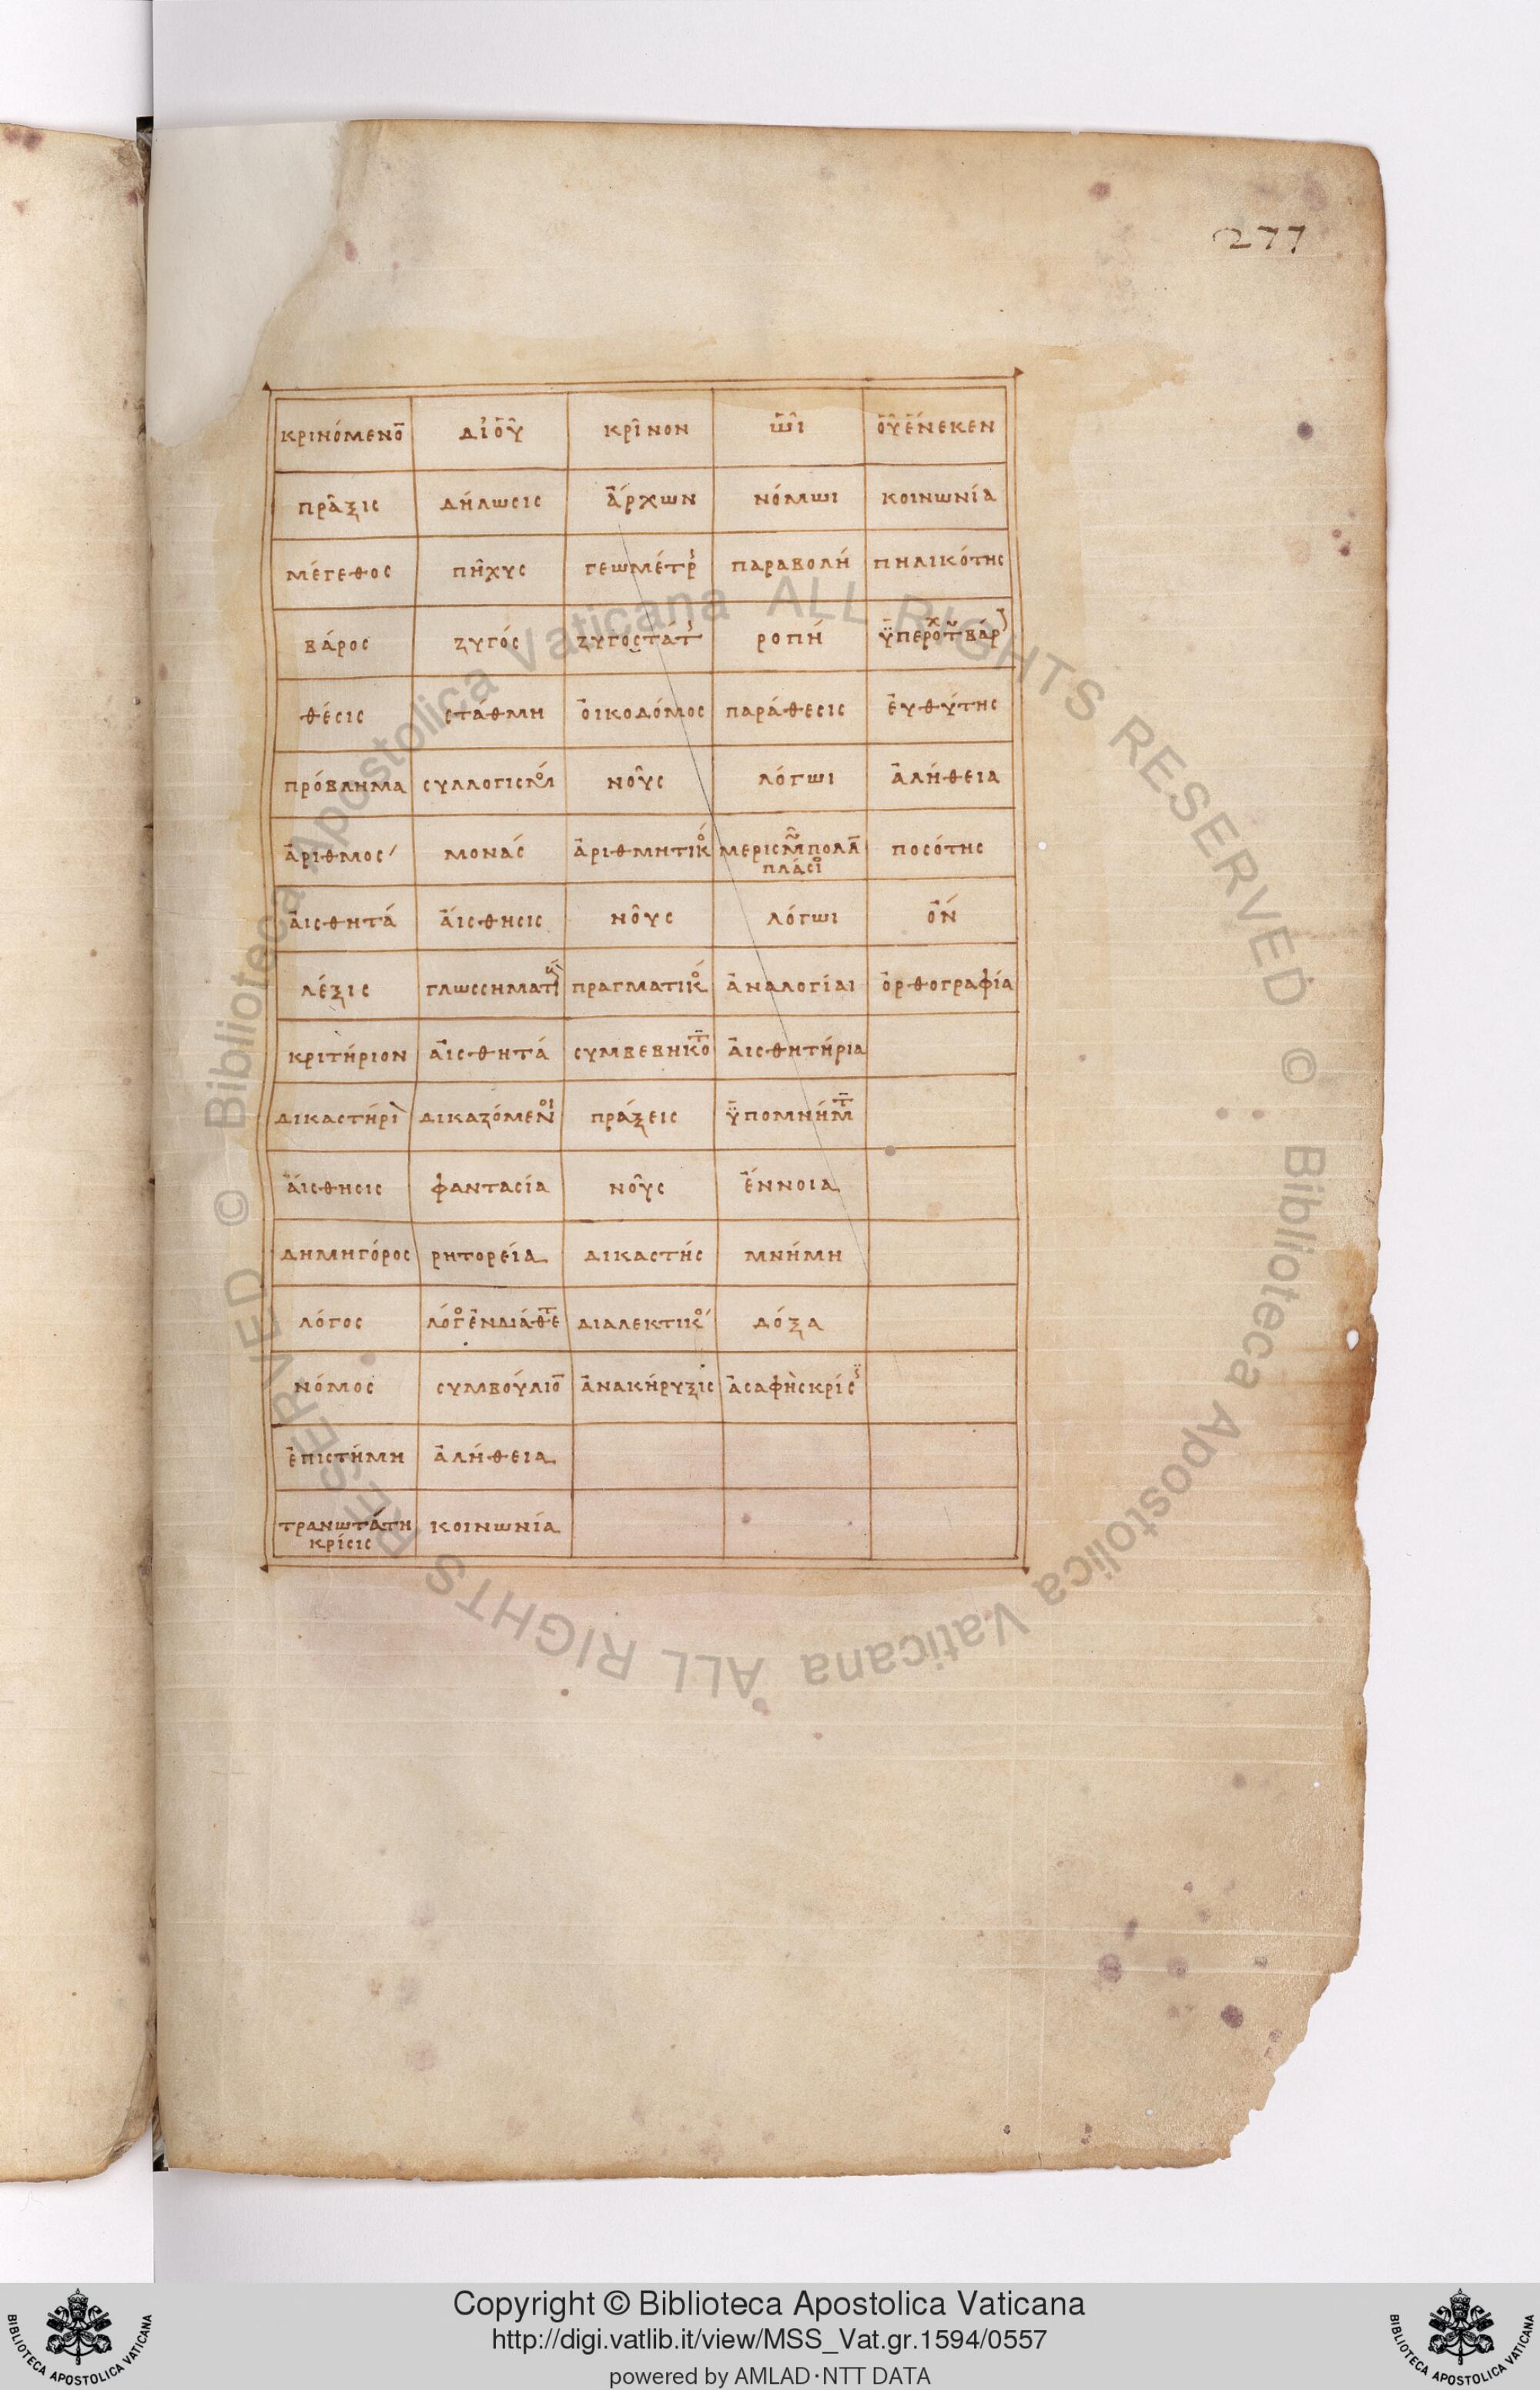 277
κρινόμενο̅ δι᾽ οὗ κρῖνον ὧι οὗ ἕνεκεν
πρᾶξις δήλωσις ἄρχων νόμωι κοινωνία
μέγεθος πῆχυς γεωμέτρ παραβολή πηλικότης
βάρος ζυγός ζυγοστάτ ροπή
θέσις στάθμη οἰκοδόμος παράθεσις εὐθύτης
πρόβλημα συλλογισμοί νοῦς λόγωι ἀλήθεια
ἀριθμός μονάς ἀριθμητικό μερισμπολλ ποσότης
πλάσι
αἰσθητά αἴσθησις νοῦς λόγωι ὄν
λέξις γλωσσηματι πραγματικό ἀναλογίαι ὀρθογραφία
κριτήριον αἰσθητά συμβεβηκοτ αἰσθητήρια
δικαστήρι δικαζόμενοι πράξεις ὑπομνήμτ
αἴσθησις φαντασία νοῦς ἔννοια
δημηγόρος ρητορεία δικαστής μνήμη
λόγος λόγο ἐνδιάθετ διαλεκτικό δόξα
νόμος συμβούλιο̅ ἀνακήρυξις ἀσαφὴς κρίσ
ἐπιστήμη ἀλήθεια
τρανωτάτη κοινωνία
κρίσις
© Biblioteca Apostolica Vaticana ALL RIGHTS RESERVED © Biblioteca Apostolica Vaticana ALL RIGHTS RESERVED
Copyright © Biblioteca Apostolica Vaticana
http://digi.vatlib.it/view/MSS_Vat.gr.1594/0557
powered by AMLAD·NTT DATA
BIBLIOTECA APOSTOLICA VATICANA
BIBLIOTECA APOSTOLICA VATICANA